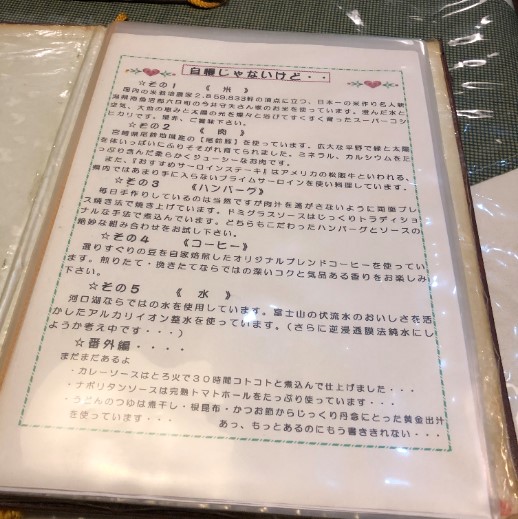 自慢じゃないけど・・
☆その1 《 米 》
国内の米栽培農家2,859,833軒の頂点に立つ、日本一の米作り名人新
潟県南魚沼郡六日町の今井守夫さん家のお米を使っています。澄んだ水と
空気、大地の恵みと太陽の光を燦々と浴びてすくすく育ったスーパーコシ
ヒカリです。是非、ご賞味下さい。
☆その2 《 肉 》
宮崎県尾鈴地域産の「尾鈴豚」を使っています。広大な平野で緑と太陽
をいっぱいにふりそそがれ育てられました。ミネラル、カルシウムをた
っぷり含んだ柔らかくジューシーなお肉です。
また、『おすすめサーロインステーキ』はアメリカの松阪牛といわれる、
県内ではあまり手に入らないプライムサーロインを使い料理しています。
☆その3 《ハンバーグ》
毎日手作りしているのは当然ですが肉汁を逃がさないように両面プレ
ス焼き法で焼き上げています。ドミグラスソースはじっくりトラディショ
ナルな手法で煮込んでいます。どちらもこだわったハンバーグとソースの
絶妙な組み合わせをお試し下さい。
☆その4 《コーヒー》
選りすぐりの豆を自家焙煎したオリジナルブレンドコーヒーを使ってい
ます。煎りたて・挽きたてならではの深いコクと気品ある香りをお楽しみ
下さい。
☆その5 《 水 》
河口湖ならではの水を使用しています。富士山の伏流水のおいしさを活
かしたアルカリイオン整水を使っています。(さらに逆浸透膜法純水にし
ようか考え中です・・・)
☆番外編・・・・
まだまだあるよ
・カレーソースはとろ火で30時間コトコトと煮込んで仕上げました・・・
・ナポリタンソースは完熟トマトホールをたっぷり使っています・・・
・うどんのつゆは煮干し・根昆布・かつお節からじっくり丹念にとった黄金出汁
を使っています・・・ あっ、もっとあるのにもう書ききれない・・・